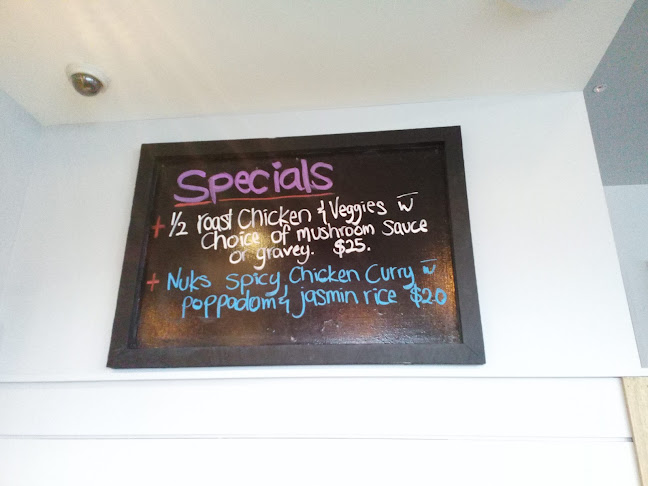 Specials
+ 1/2 roast Chicken & Veggies w̅
Choice of mushroom Sauce
or gravey. $25.
+ Nuks spicy Chicken Curry w̅
poppadom & jasmin rice $20